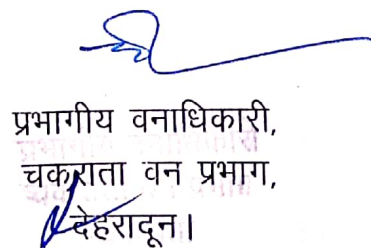 प्रभागीय वनाधिकारी,
चकराता वन प्रभाग,
देहरादून।